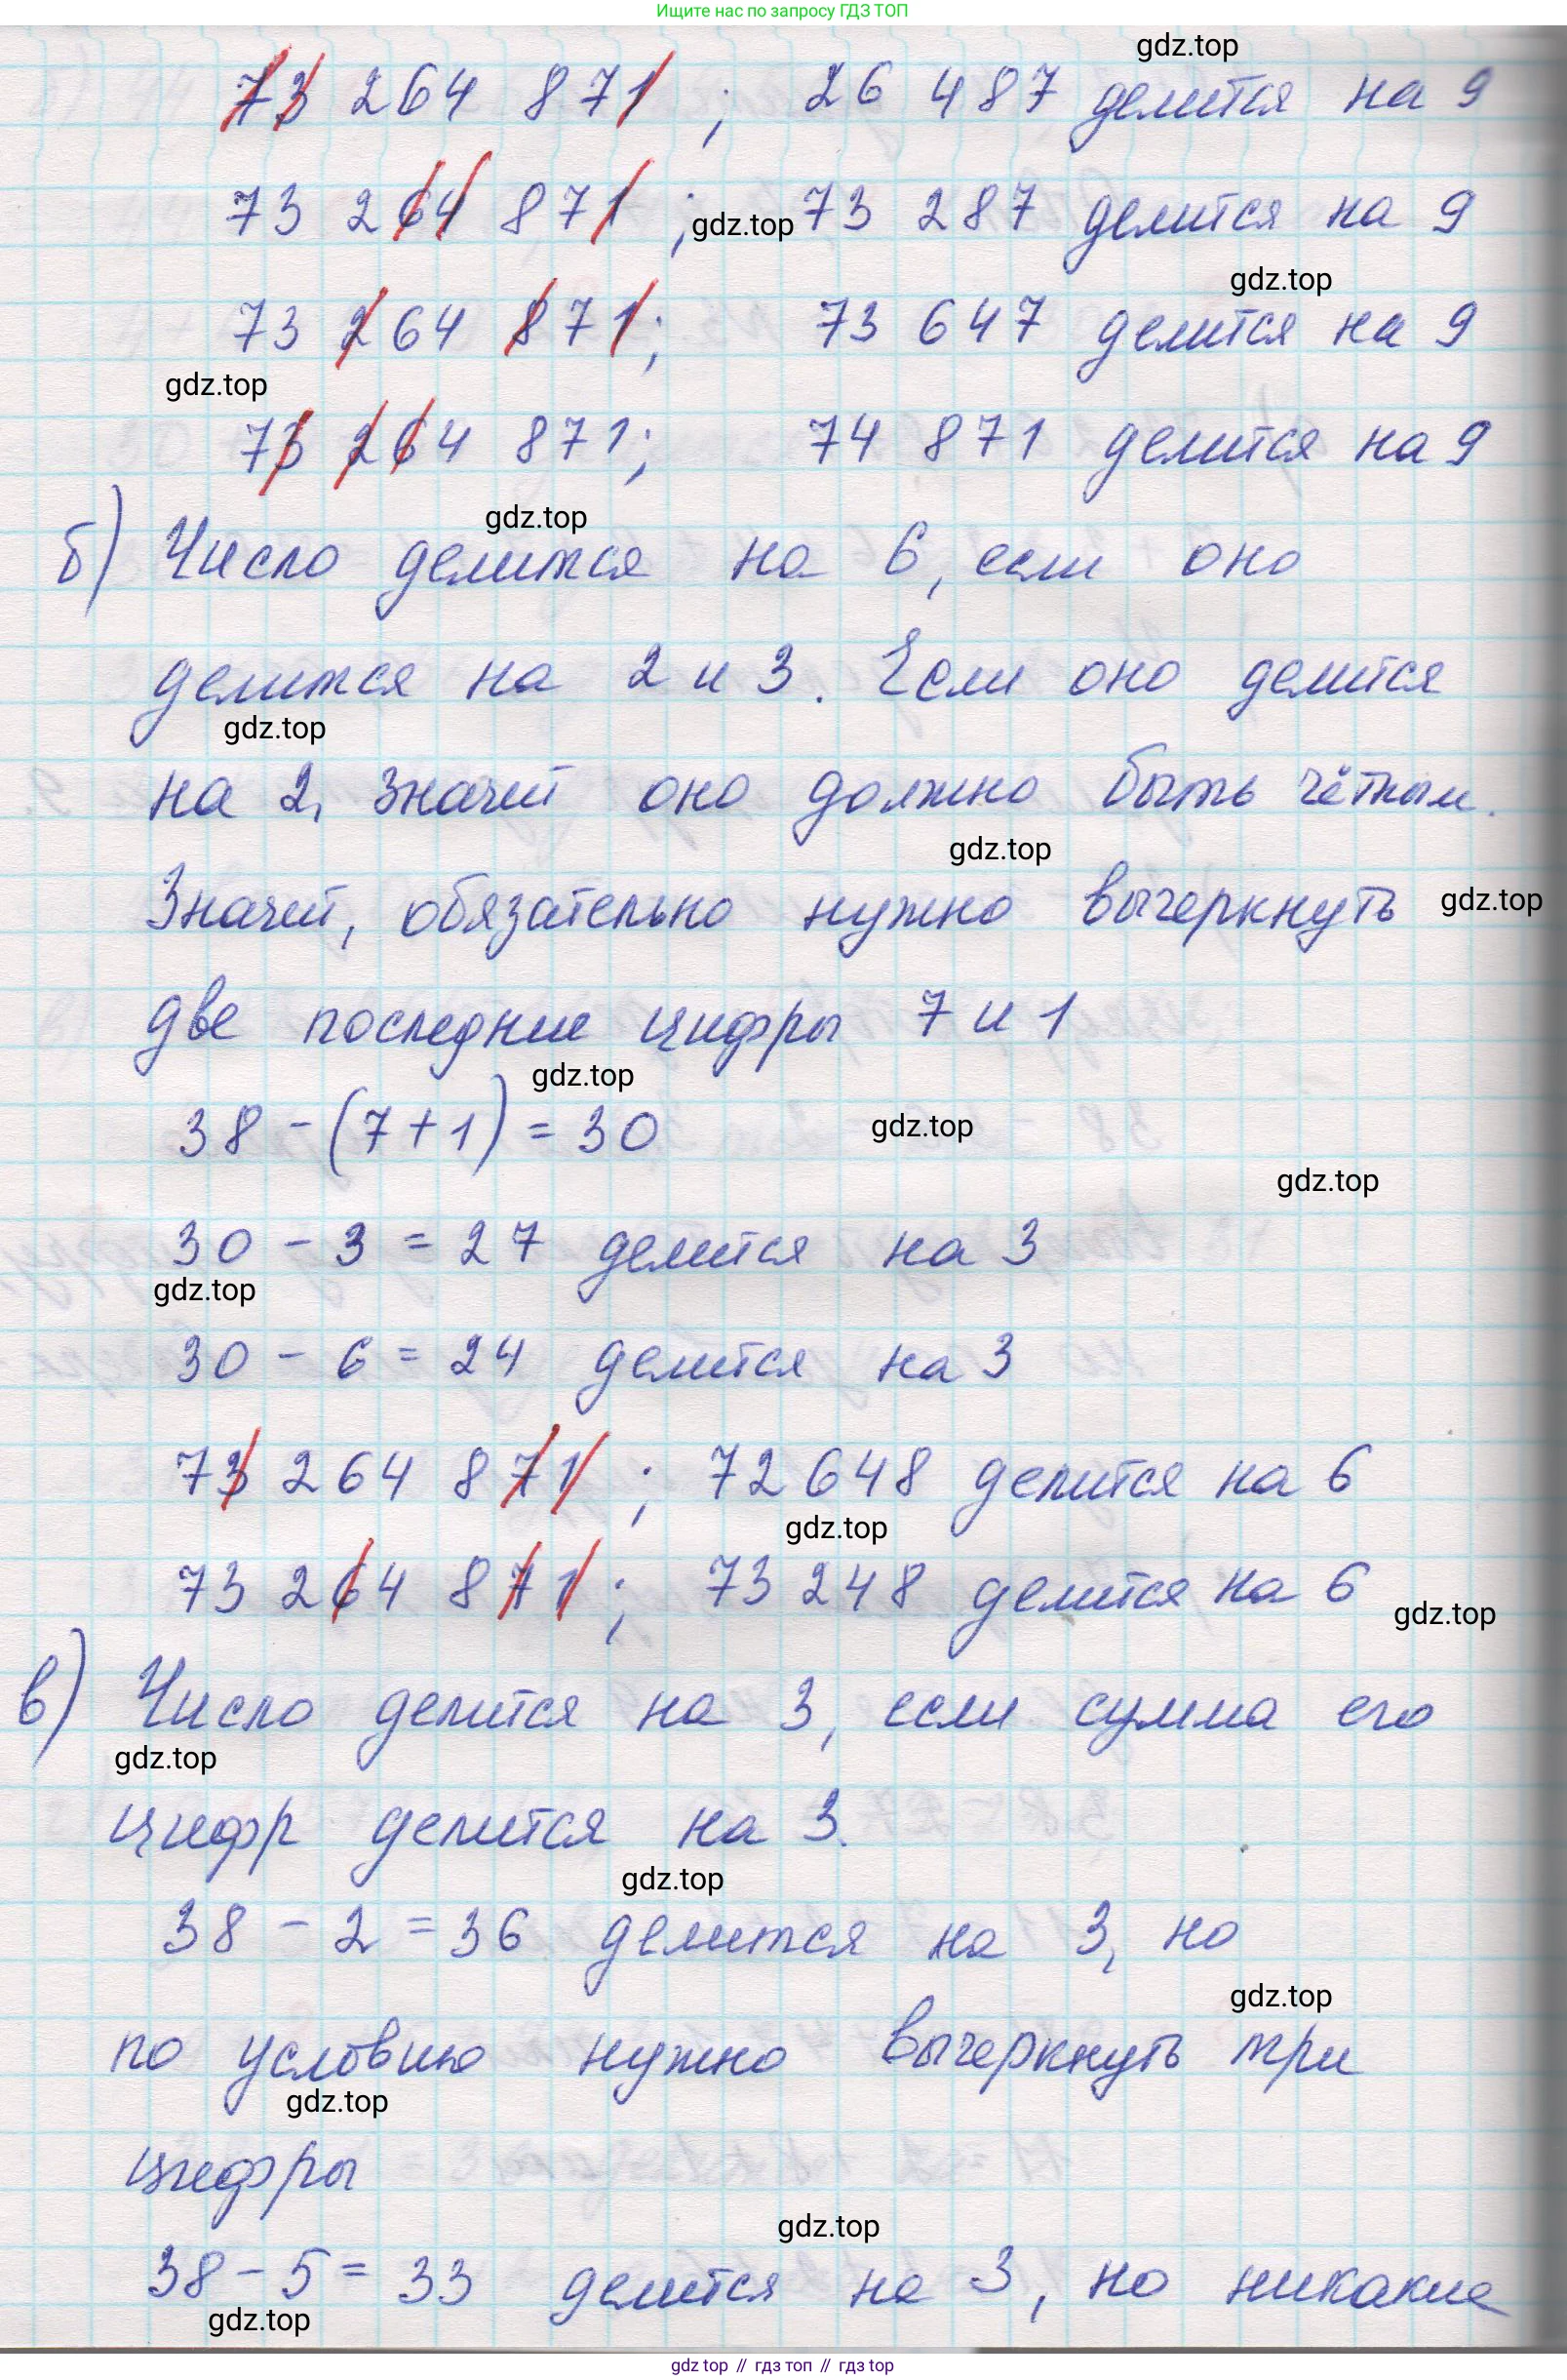 Ищите нас по запросу ГДЗ ТОП
gdz.top
73 264 871 ; 26 487 делится на 9
73 264 871 ; gdz.top 73 287 делится на 9
gdz.top
73 264 871; 73 647 делится на 9
gdz.top
73 264 871; 74 871 делится на 9
gdz.top
б) Число делится на 6, если оно
делится на 2 и 3. Если оно делится
gdz.top
на 2, значит оно должно быть чётным.
gdz.top
Значит, обязательно нужно вычеркнуть gdz.top
две последние цифры 7 и 1
gdz.top
38 - (7 + 1) = 30 gdz.top
gdz.top
30 - 3 = 27 делится на 3
gdz.top
30 - 6 = 24 делится на 3
73 264 871 ; 72 648 делится на 6
gdz.top
73 264 871 ; 73 248 делится на 6
gdz.top
в) Число делится на 3, если сумма его
gdz.top
цифр делится на 3.
gdz.top
38 - 2 = 36 делится на 3, но
gdz.top
по условию нужно вычеркнуть три
gdz.top
цифры
gdz.top
38 - 5 = 33 делится на 3, но никакие
gdz.top
gdz top // гдз топ // гдз top